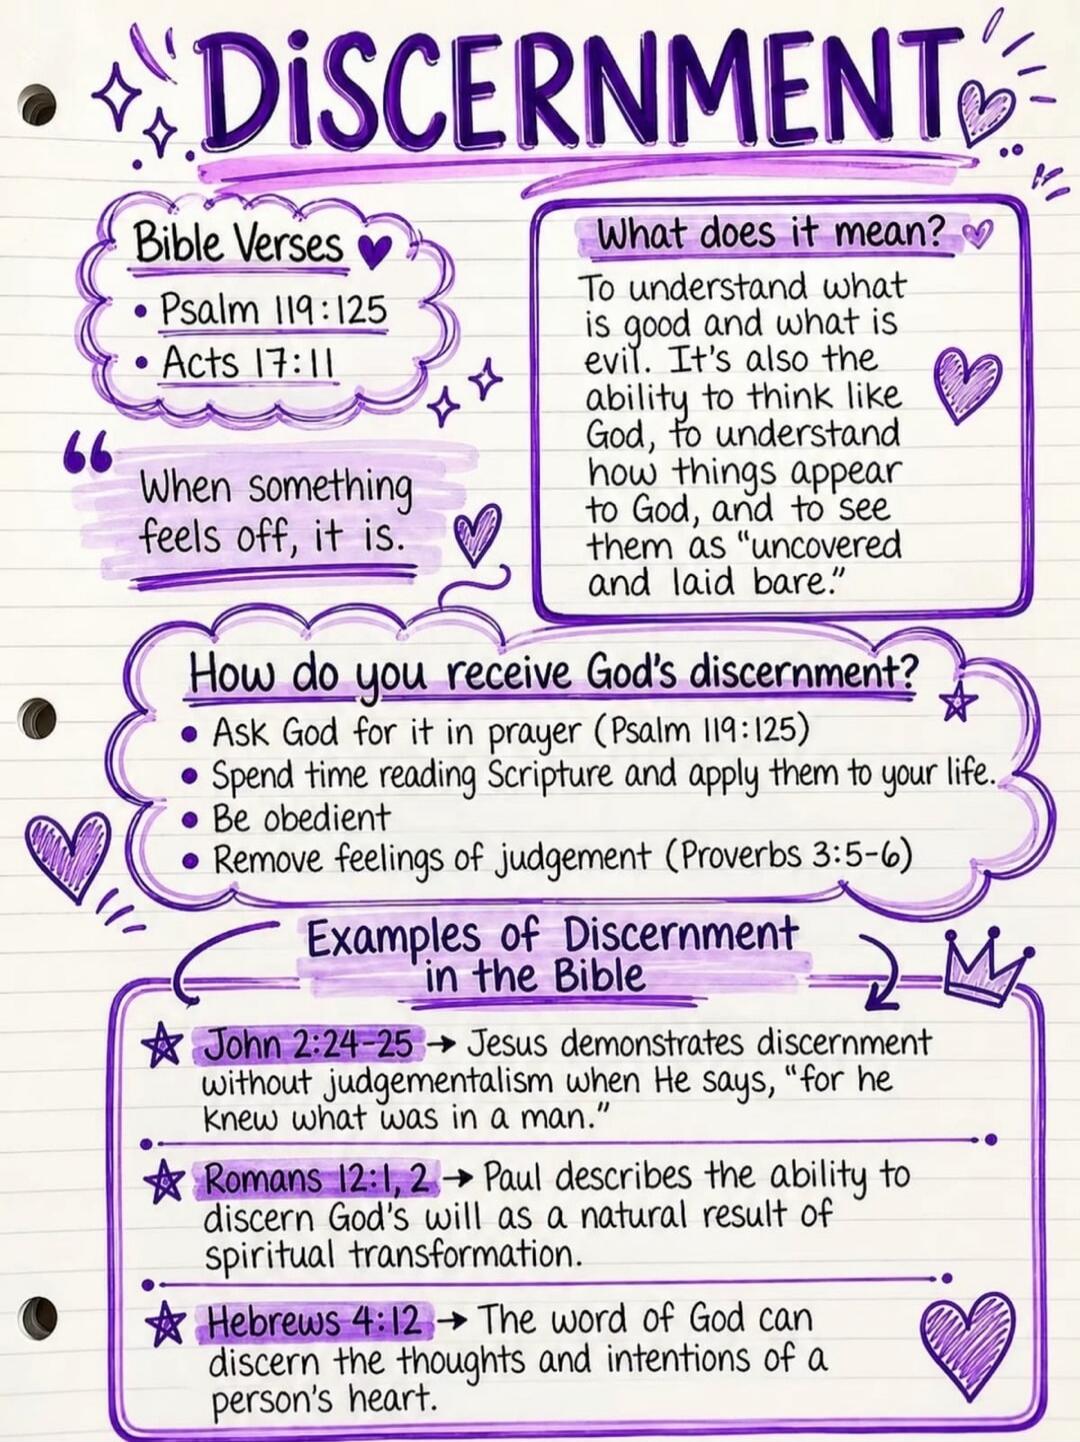 DiSCERNMENT
Bible Verses
• Psalm 119:125
• Acts 17:11
“
When something
feels off, it is.
What does it mean?
To understand what
is good and what is
evil. It's also the
ability to think like
God, to understand
how things appear
to God, and to see
them as "uncovered
and laid bare."
How do you receive God's discernment?
• Ask God for it in prayer (Psalm 119:125)
• Spend time reading Scripture and apply them to your life.
• Be obedient
• Remove feelings of judgement (Proverbs 3:5-6)
Examples of Discernment
in the Bible
John 2:24-25 → Jesus demonstrates discernment
without judgementalism when He says, "for he
knew what was in a man."
Romans 12:1, 2 → Paul describes the ability to
discern God's will as a natural result of
spiritual transformation.
Hebrews 4:12 → The word of God can
discern the thoughts and intentions of a
person's heart.